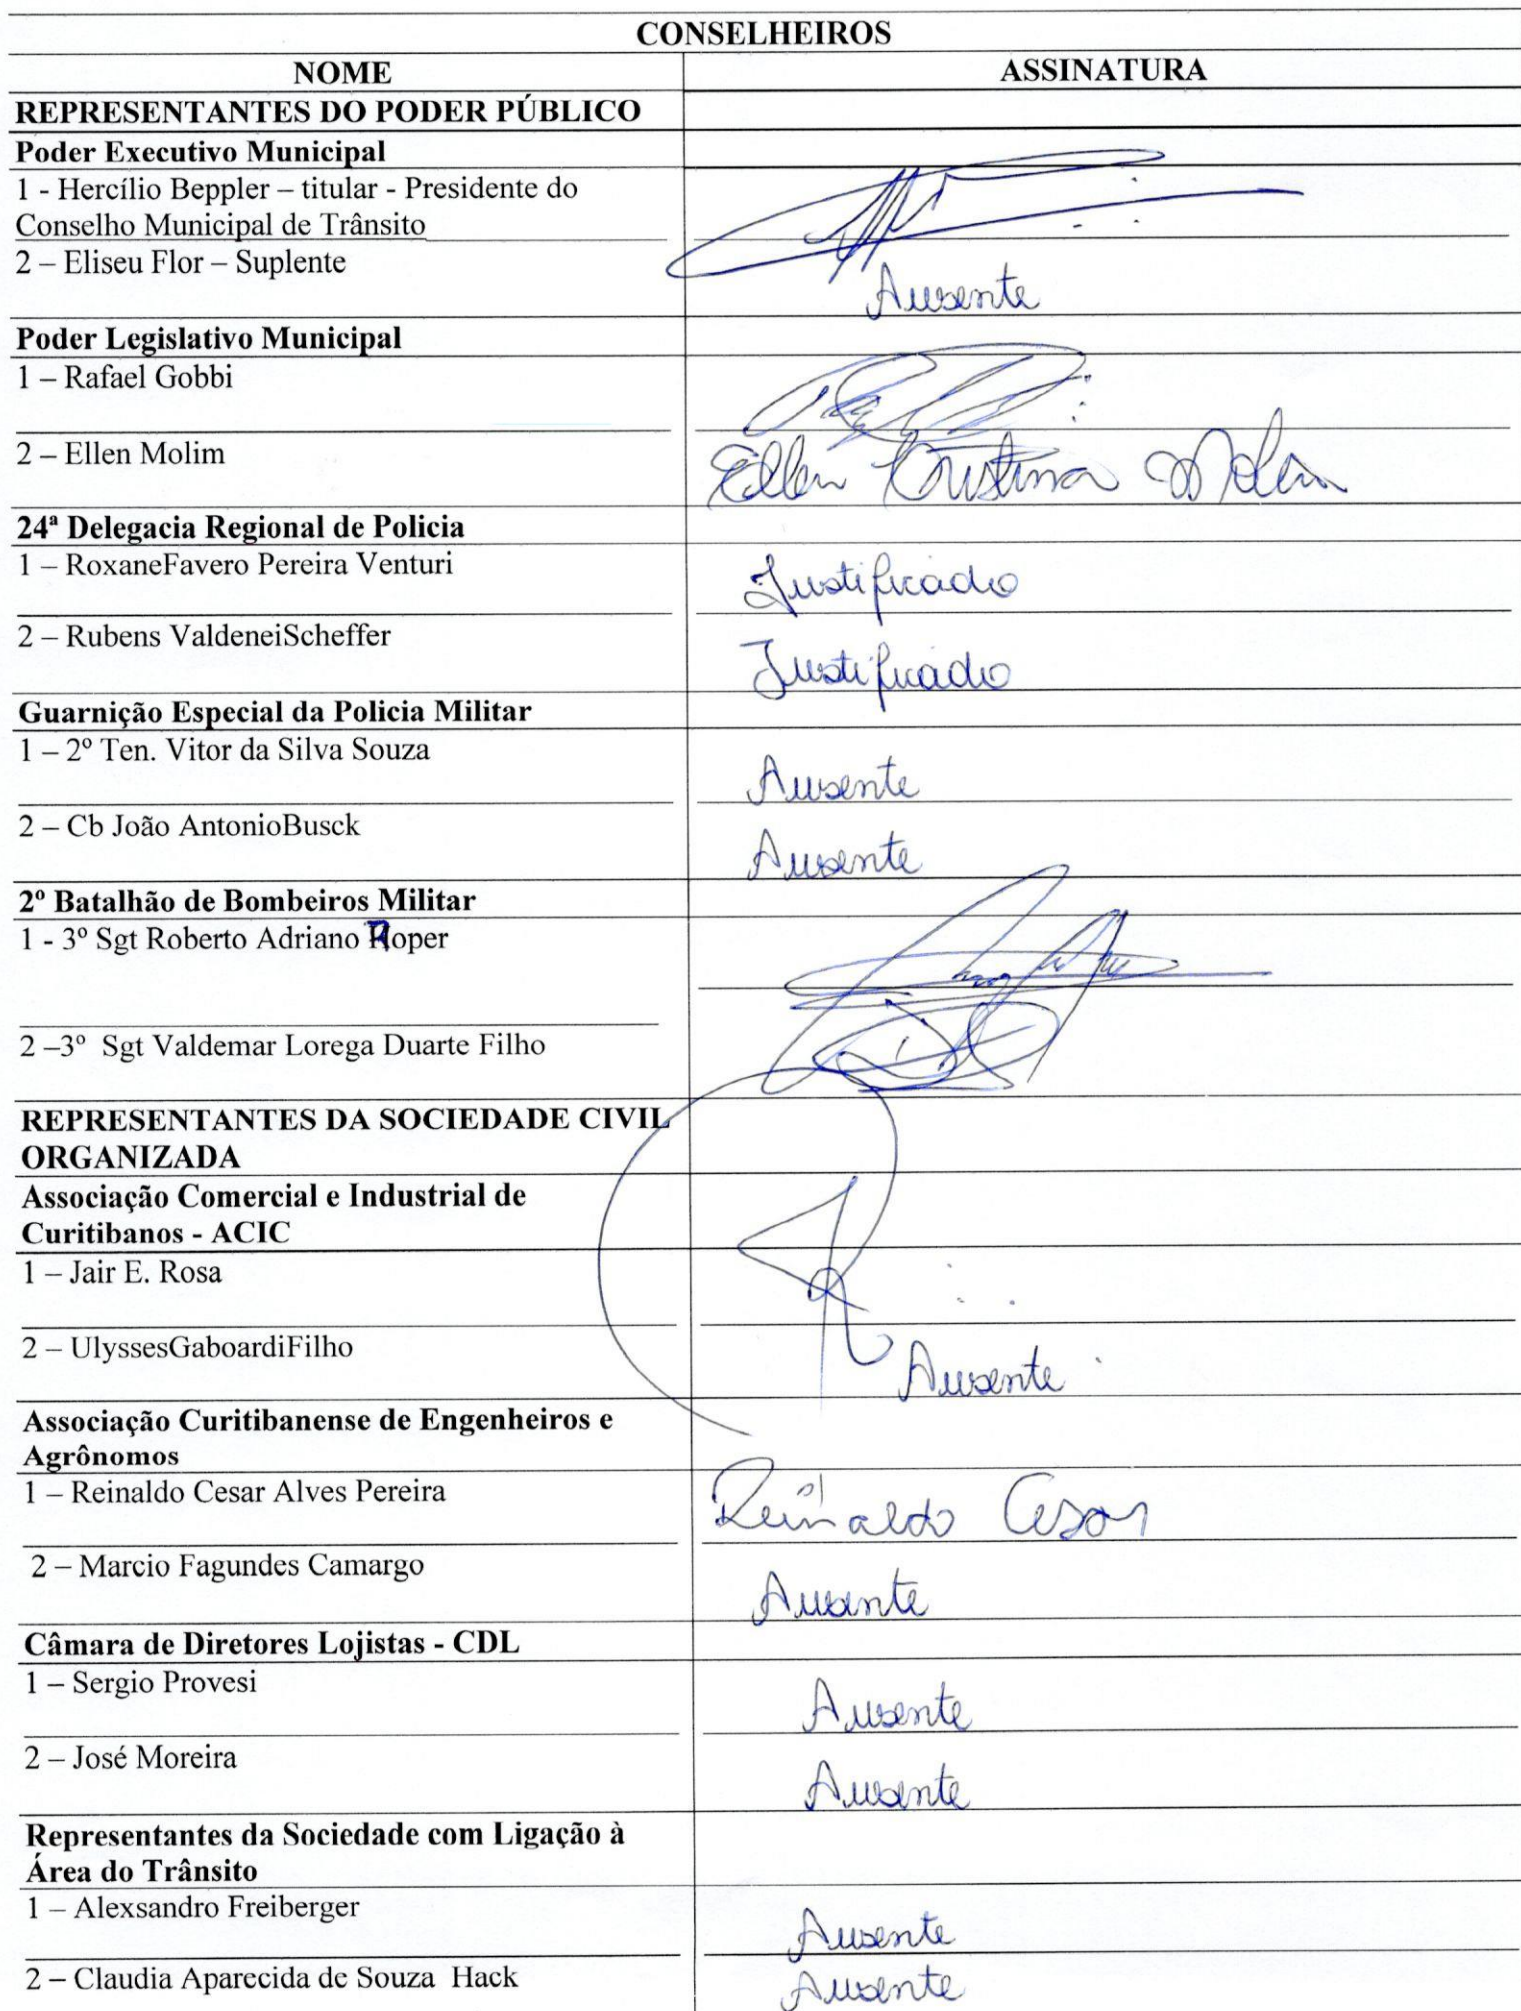 CONSELHEIROS
NOME ASSINATURA
REPRESENTANTES DO PODER PÚBLICO
Poder Executivo Municipal
1 - Hercílio Beppler – titular - Presidente do
Conselho Municipal de Trânsito
2 – Eliseu Flor – Suplente
Ausente
Poder Legislativo Municipal
1 – Rafael Gobbi
2 – Ellen Molim
Ellen Cristina Molin
24ª Delegacia Regional de Policia
1 – RoxaneFavero Pereira Venturi
Justificado
2 – Rubens ValdeneiScheffer
Justificado
Guarnição Especial da Policia Militar
1 – 2º Ten. Vitor da Silva Souza
Ausente
2 – Cb João AntonioBusck
Ausente
2º Batalhão de Bombeiros Militar
1 - 3º Sgt Roberto Adriano Roper
2 –3º Sgt Valdemar Lorega Duarte Filho
REPRESENTANTES DA SOCIEDADE CIVIL
ORGANIZADA
Associação Comercial e Industrial de
Curitibanos - ACIC
1 – Jair E. Rosa
2 – UlyssesGaboardiFilho
Ausente
Associação Curitibanense de Engenheiros e
Agrônomos
1 – Reinaldo Cesar Alves Pereira
Reinaldo Cesar
2 – Marcio Fagundes Camargo
Ausente
Câmara de Diretores Lojistas - CDL
1 – Sergio Provesi
Ausente
2 – José Moreira
Ausente
Representantes da Sociedade com Ligação à
Área do Trânsito
1 – Alexsandro Freiberger
Ausente
2 – Claudia Aparecida de Souza Hack
Ausente